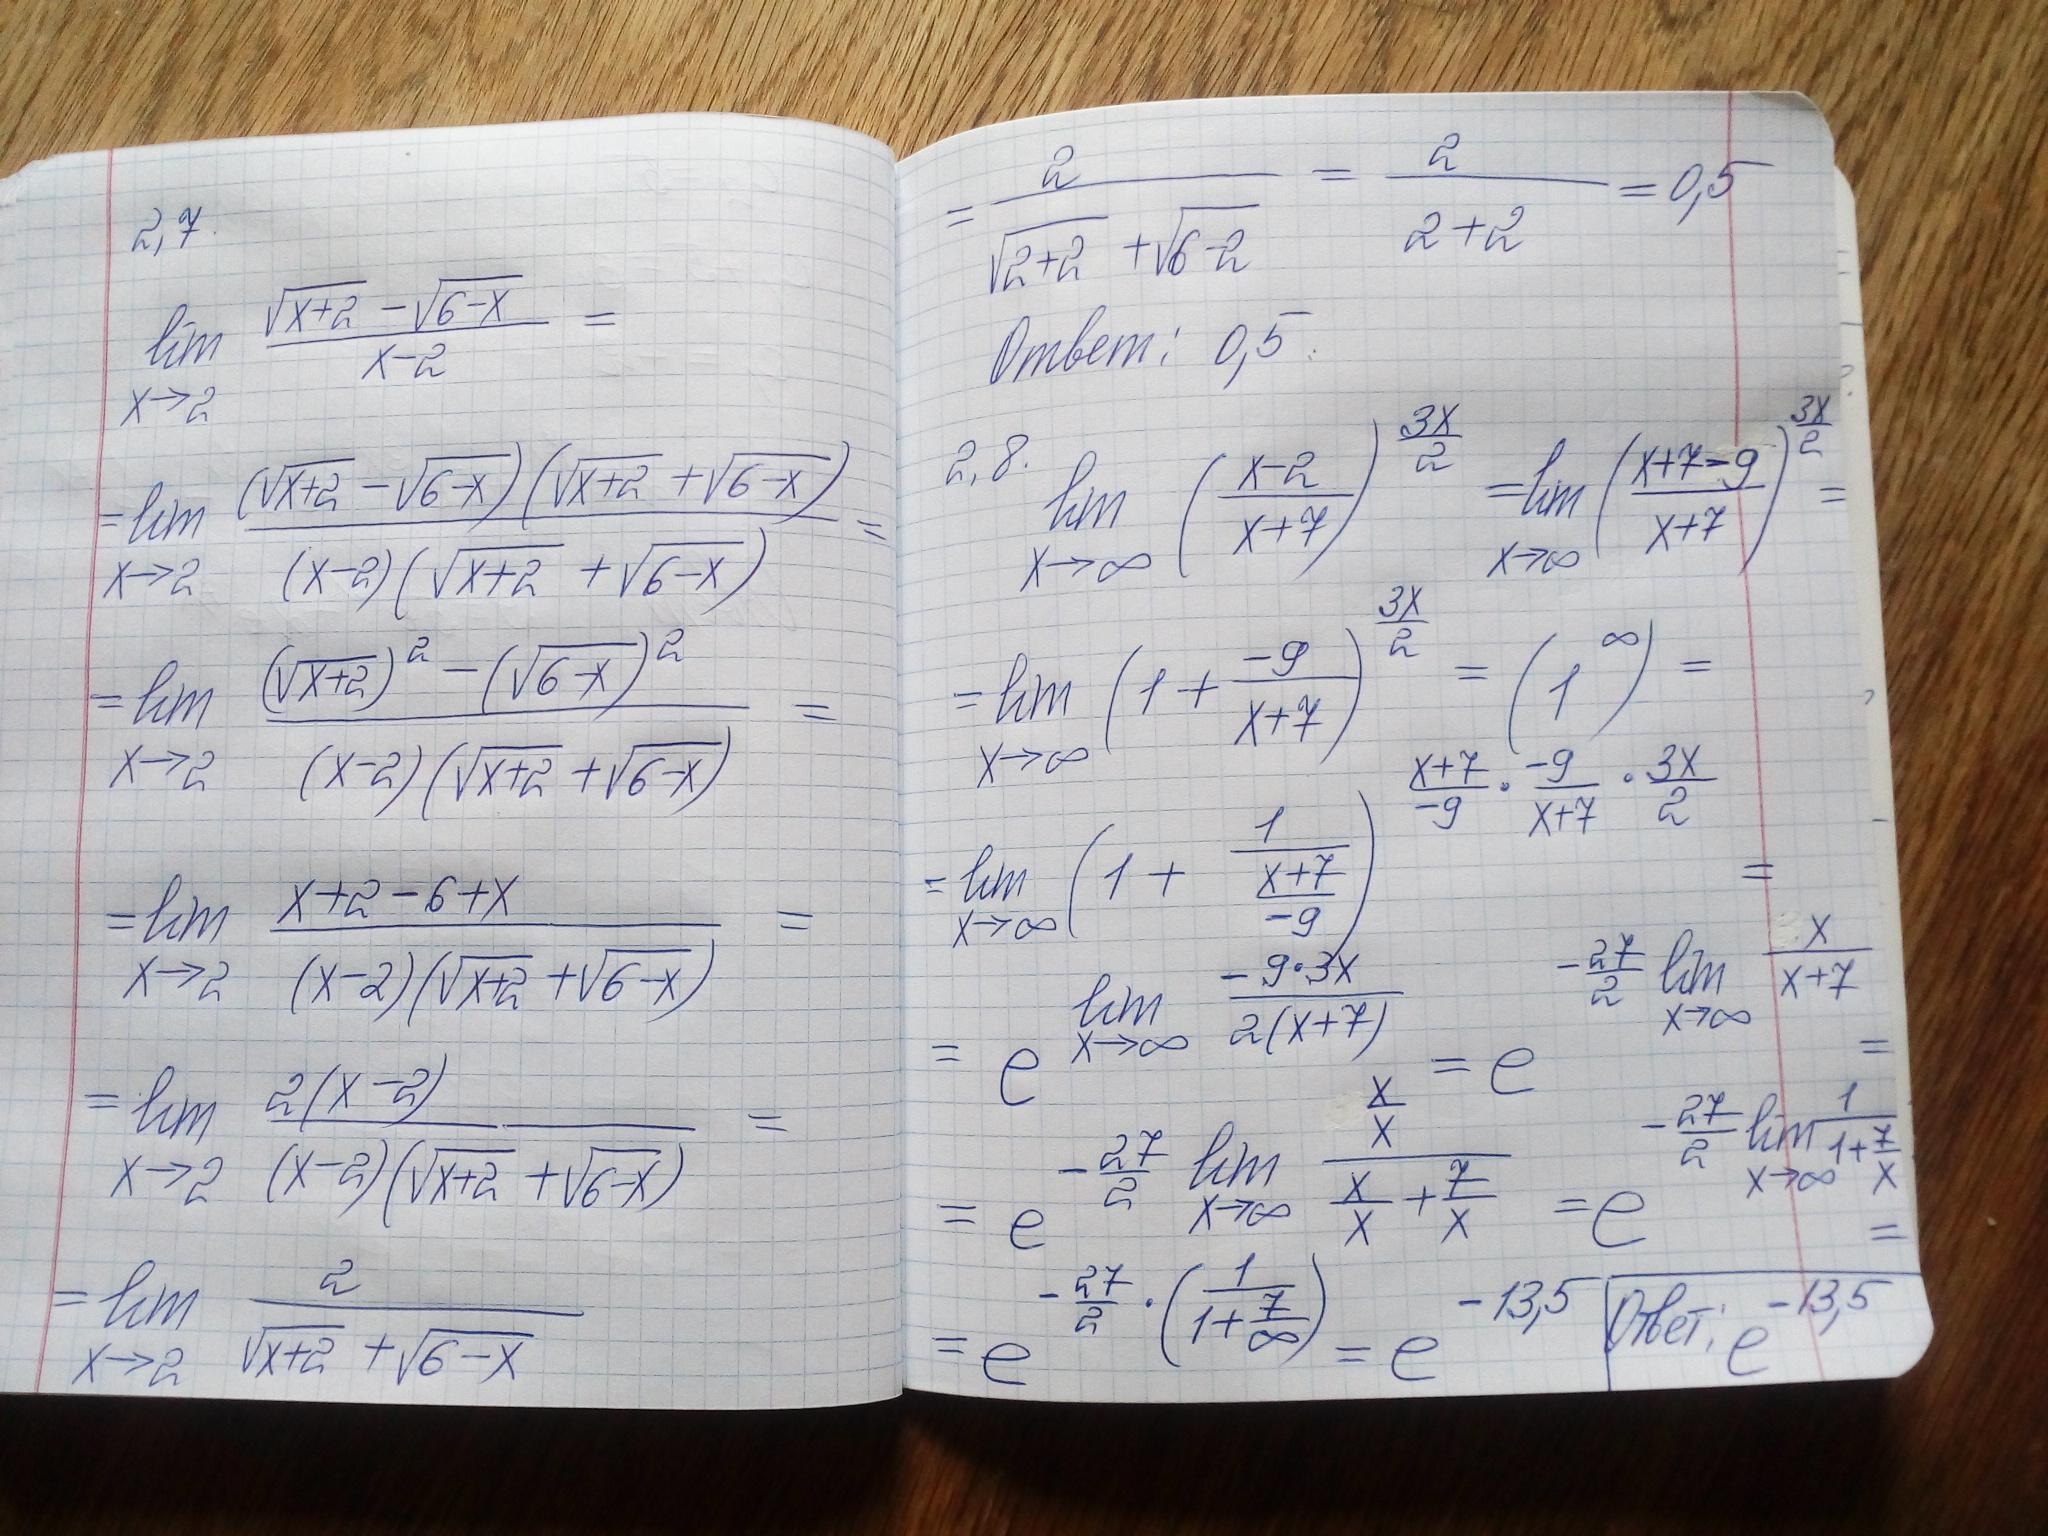 2,7.
lim x→2 (√(x+2) - √(6-x))/(x-2) =
= lim x→2 ((√(x+2) - √(6-x))(√(x+2) + √(6-x)))/((x-2)(√(x+2) + √(6-x))) =
= lim x→2 ((√(x+2))² - (√(6-x))²)/((x-2)(√(x+2) + √(6-x))) =
= lim x→2 (x+2-6+x)/((x-2)(√(x+2) + √(6-x))) =
= lim x→2 (2(x-2))/((x-2)(√(x+2) + √(6-x))) =
= lim x→2 2/(√(x+2) + √(6-x))
= 2/(√(2+2) + √(6-2)) = 2/(2+2) = 0,5
Ответ: 0,5.
2,8. lim x→∞ ((x-2)/(x+7))^(3x/2) = lim x→∞ ((x+7-9)/(x+7))^(3x/2) =
= lim x→∞ (1 + (-9)/(x+7))^(3x/2) = (1^∞) =
= lim x→∞ (1 + 1/((x+7)/(-9)))^((x+7)/(-9) · (-9)/(x+7) · (3x)/2) =
= e^(lim x→∞ (-9·3x)/(2(x+7))) = e^(-27/2 lim x→∞ x/(x+7)) =
= e^(-27/2 lim x→∞ (x/x)/(x/x + 7/x)) = e^(-27/2 lim x→∞ 1/(1+7/x)) =
= e^(-27/2 · (1/(1+7/∞))) = e^(-13,5) Ответ: e^(-13,5)